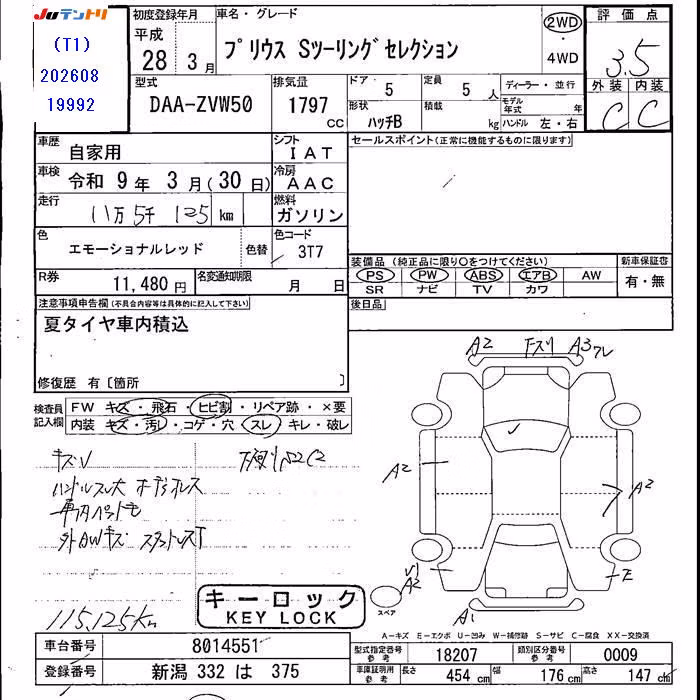 Juテントリ
(T1)
202608
19992
初度登録年月
平成
28 3月
車名・グレード
プリウス Sツーリングセレクション
2WD
・
4WD
評価点
3.5
外装 内装
C C
型式
DAA-ZVW50
排気量
1797
CC
ドア
5
定員
5 人
形状
ハッチB
積載
kg
ディーラー・並行
モデル年式 年
ハンドル 左・右
車歴
自家用
シフト
IAT
車検
令和 9年 3月(30日)
冷房
AAC
走行
11万5千125km
燃料
ガソリン
色
エモーショナルレッド
色替
色コード
3T7
R券
11,480円
名変通知期限
月 日
セールスポイント(正常に機能するものに限ります)
装備品(純正品に限り○をつけてください)
PS PW ABS エアB AW
SR ナビ TV カワ
新車保証書
有・無
後日品
注意事項申告欄(不具合内容等は具体的に記入して下さい)
夏タイヤ車内積込
修復歴 有〔箇所 〕
検査員記入欄
FW キズ・飛石・ヒビ割・リペア跡・×要
内装 キズ・汚レ・コゲ・穴・スレ・キレ・破レ
キズV
下廻りS2C2
ハンドルスレ大 オーディオレス
外AWキズ スタッドレスT
115,125km
A2 下スリ A3ワレ
A2 A2
V1
A2 E
A1
スペア
キーロック
KEY LOCK
A－キズ E－エクボ U－凹み W－補修跡 S－サビ C－腐食 XX－交換済
車台番号
8014551
登録番号
新潟 332 は 375
型式指定番号
参考
18207
類別区分番号
参考
0009
車庫証明用
参考
長さ 454 cm
幅 176 cm
高さ 147 cm